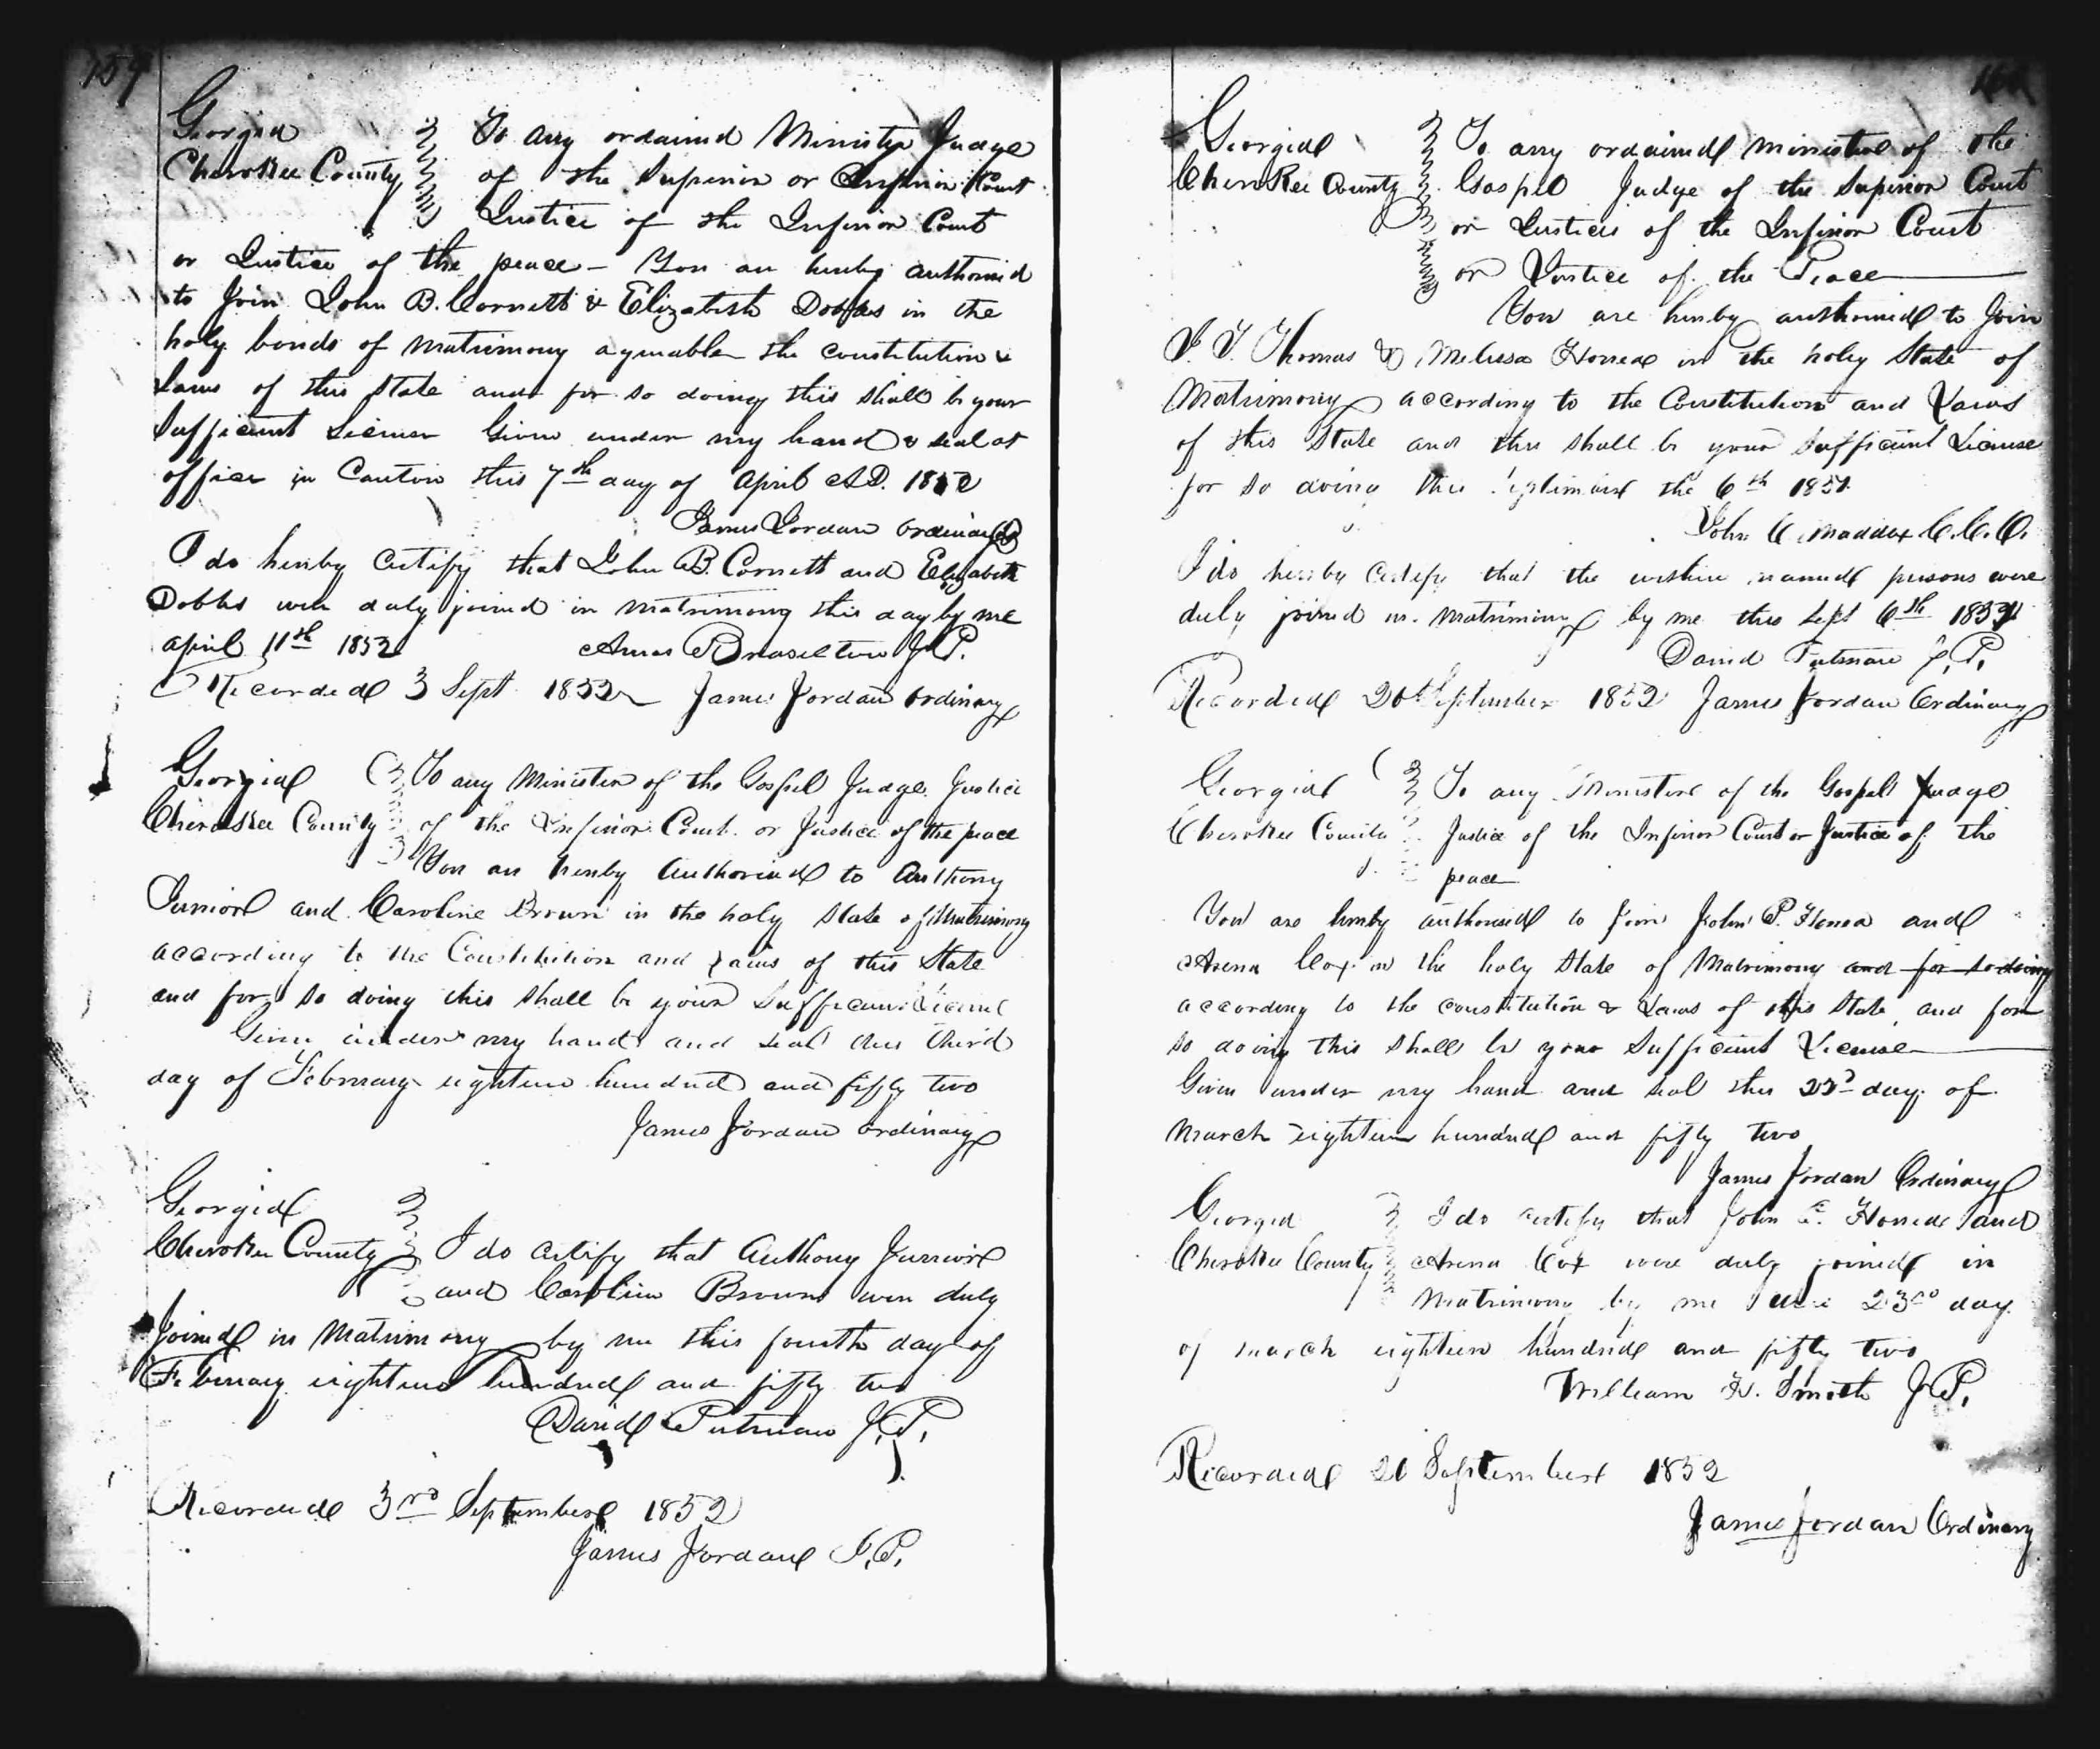 159
Georgia
Cherokee County
To any ordained Minister Judge
of the Superior or Inferior Court
Justice of the Inferior Court
or Justice of the peace – You are hereby authorized
to Join John B. Cornett & Elizabeth Dobbs in the
holy bonds of matrimony agreuable the constitution &
Laws of this State and for so doing this shall be your
Sufficient License Given under my hand & seal at
office in Canton this 7th day of April AD. 1852
James Jordan ordinary
I do hereby Certify that John B. Cornett and Elizabeth
Dobbs were duly joined in matrimony this day by me
april 11th 1852 Amos Braselton J.P.
Recorded 3 Sept 1852 James Jordan ordinary
Georgia
Cherokee County
To any Minister of the Gospel Judge Justice
of the Inferior Court or Justice of the peace
You are hereby Authorised to Anthony
Junior and Caroline Brown in the holy State of Matrimony
according to the Constitution and Laws of this State
and for so doing this shall be your Sufficient License
Given under my hand and seal this third
day of February eighteen hundred and fifty two
James Jordan ordinary
Georgia
Cherokee County
I do certify that Anthony Junior
and Caroline Brown were duly
Joined in Matrimony by me this fourth day of
February eighteen hundred and fifty two
David Putman J.P.
Recorded 3rd September 1852
James Jordan J.P.
160
Georgia
Cherokee County
To any ordained minister of the
Gospel Judge of the Superior Court
or Justices of the Inferior Court
or Justice of the Peace
You are hereby authorised to Join
Thomas & Melissa in the holy State of
Matrimony according to the Constitution and Laws
of this State and this shall be your Sufficient License
for so doing this September the 6th
John C. Maddox C.C.O.
I do hereby Certify that the within named persons were
duly joined in Matrimony by me this Sept 6th
David Putman J.P.
Recorded 20th September 1852 James Jordan Ordinary
Georgia
Cherokee County
To any Minister of the Gospel Judge
Justice of the Inferior Court or Justice of the
peace
You are hereby authorised to Join John P. and
Arena Cox in the holy State of Matrimony and for so doing
according to the constitution & Laws of this State and for
so doing this shall be your Sufficient License
Given under my hand and seal this 23d day of
March eighteen hundred and fifty two
James Jordan Ordinary
Georgia
Cherokee County
I do certify that John and
Arena Cox were duly joined in
Matrimony by me this 23rd day
of march eighteen hundred and fifty two
William H. Smith J.P.
Recorded 20 September 1852
James Jordan Ordinary